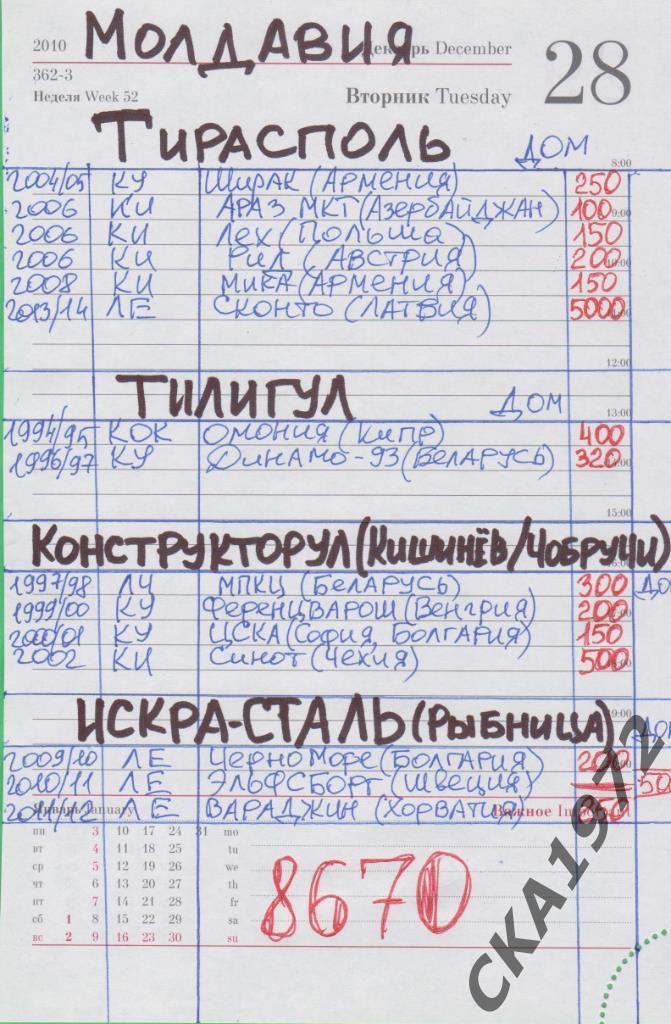 2010 МОЛДАВИЯ Декабрь December 28
362-3
Неделя Week 52 Вторник Tuesday
ТИРАСПОЛЬ ДОМ
8:00
2004/05 КУ ШИРАК (АРМЕНИЯ) 250
2006 КИ АРАЗ МКТ (АЗЕРБАЙДЖАН) 100 9:00
2006 КИ ЛЕХ (ПОЛЬША) 150
2006 КИ РИД (АВСТРИЯ) 200 10:00
2008 КИ МИКА (АРМЕНИЯ) 150
2013/14 ЛЕ СКОНТО (ЛАТВИЯ) 5000 11:00
12:00
ТИЛИГУЛ ДОМ
13:00
1994/95 КОК ОМОНИЯ (КИПР) 400
1996/97 КУ ДИНАМО-93 (БЕЛАРУСЬ) 320 14:00
15:00
КОНСТРУКТОРУЛ (КИШИНЁВ/ЧОБРУЧИ)
1997/98 ЛЧ МПКЦ (БЕЛАРУСЬ) 300 ДО
1999/00 КУ ФЕРЕНЦВАРОШ (ВЕНГРИЯ) 200
2000/01 КУ ЦСКА (СОФИЯ, БОЛГАРИЯ) 150
2002 КИ СИНОТ (ЧЕХИЯ) 500 18:00
19:00
ИСКРА-СТАЛЬ (РЫБНИЦА) ДОМ
2009/10 ЛЕ ЧЕРНО МОРЕ (БОЛГАРИЯ) 200
2010/11 ЛЕ ЭЛЬФСБОРГ (ШВЕЦИЯ) 50
2011/12 ЛЕ ВАРАДЖИН (ХОРВАТИЯ)
Январь January Важное
пн 3 10 17 24 31 mo
вт 4 11 18 25 tu
ср 5 12 19 26 we
чт 6 13 20 27 th
пт 7 14 21 28 fr
сб 1 8 15 22 29 sa
вс 2 9 16 23 30 su
8670
СКА1972